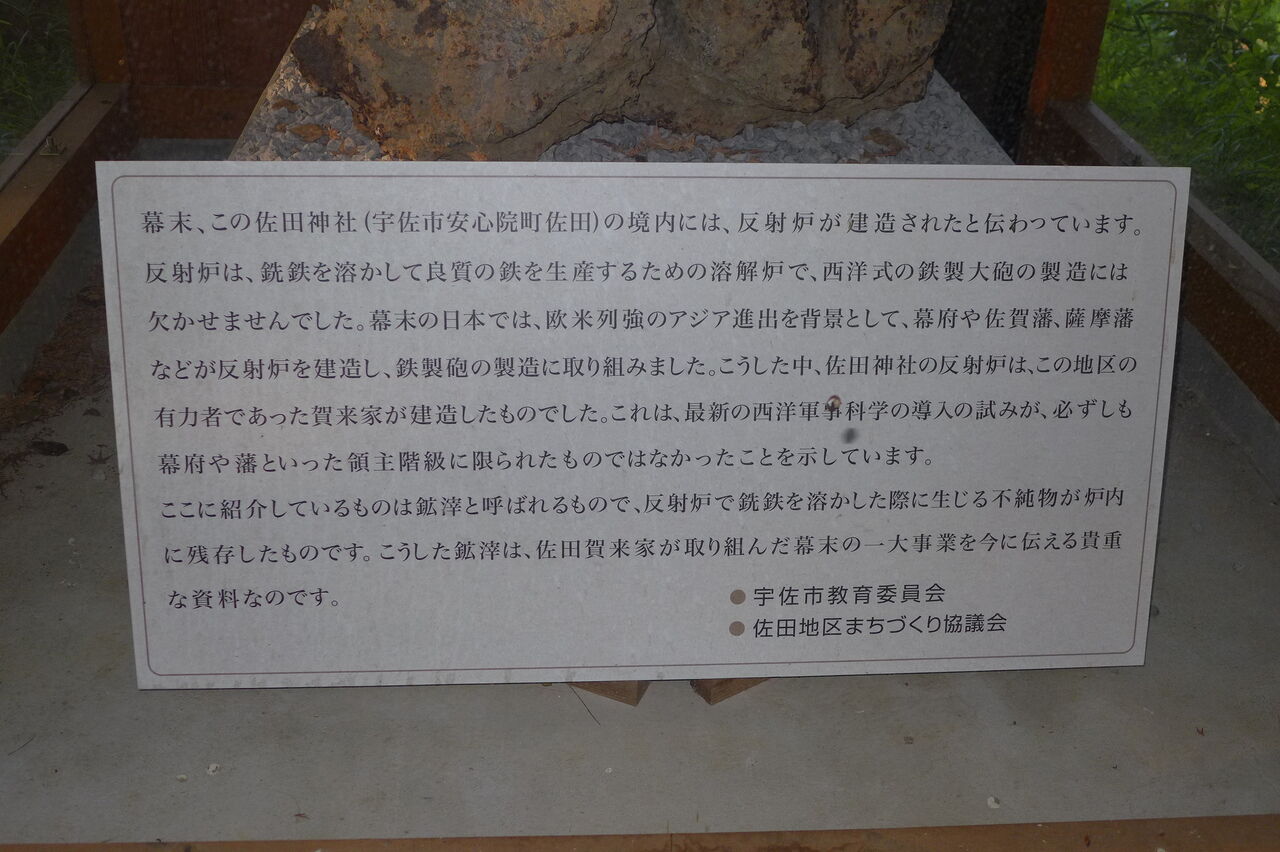 幕末、この佐田神社(宇佐市安心院町佐田)の境内には、反射炉が建造されたと伝わっています。
反射炉は、銑鉄を溶かして良質の鉄を生産するための溶解炉で、西洋式の鉄製大砲の製造には
欠かせませんでした。幕末の日本では、欧米列強のアジア進出を背景として、幕府や佐賀藩、薩摩藩
などが反射炉を建造し、鉄製砲の製造に取り組みました。こうした中、佐田神社の反射炉は、この地区の
有力者であった賀来家が建造したものでした。これは、最新の西洋軍事科学の導入の試みが、必ずしも
幕府や藩といった領主階級に限られたものではなかったことを示しています。
ここに紹介しているものは鉱滓と呼ばれるもので、反射炉で銑鉄を溶かした際に生じる不純物が炉内
に残存したものです。こうした鉱滓は、佐田賀来家が取り組んだ幕末の一大事業を今に伝える貴重
な資料なのです。
●宇佐市教育委員会
●佐田地区まちづくり協議会